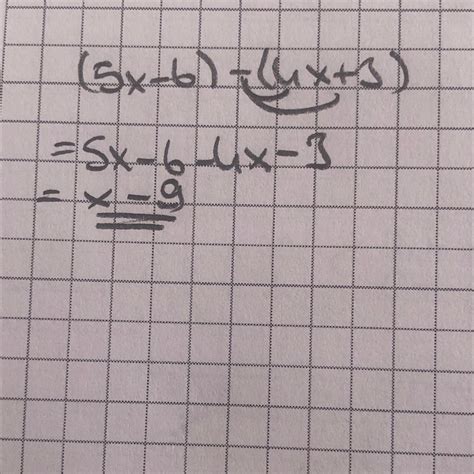 (5x-6)-(4x+3)
=5x-6-4x-3
= x-9